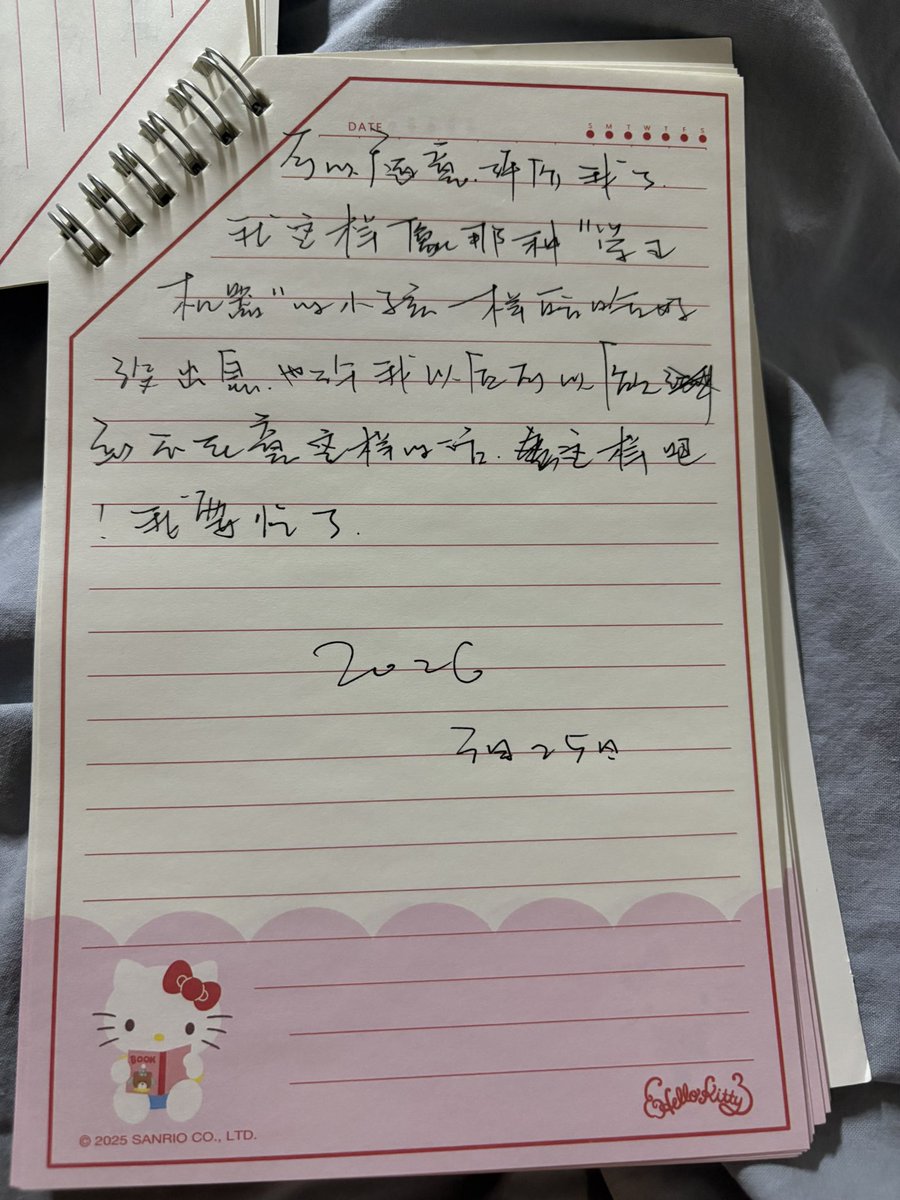 DATE
S M T W T F S
可以随意评价我了.
我这样像那种"学习
机器"的小孩一样哈哈好
没出息.也许我以后可以做
到不在意这样的话.就这样吧
!我要忙了.
2026
3月25日
BOOK
Hello Kitty
© 2025 SANRIO CO., LTD.